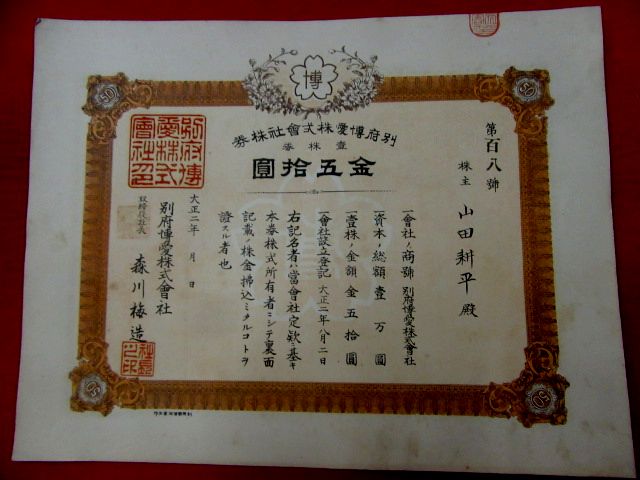 博
別府博愛株式會社株券
壹株券
金五拾圓
第百八號
株主 山田耕平殿
一會社ノ商號 別府博愛株式會社
一資本ノ總額壹万圓
一壹株ノ金額金五拾圓
一會社設立登記 大正二年八月二日
右記名者ハ當會社定款ニ基キ
本券株式所有者ニシテ裏面
記載ノ株金拂込ミタルコトヲ
證スル者也
大正二年 月 日
別府博愛株式會社
取締役社長 森川梅造
別府博
愛株式
會社印
社長
之印
50
50
50
50